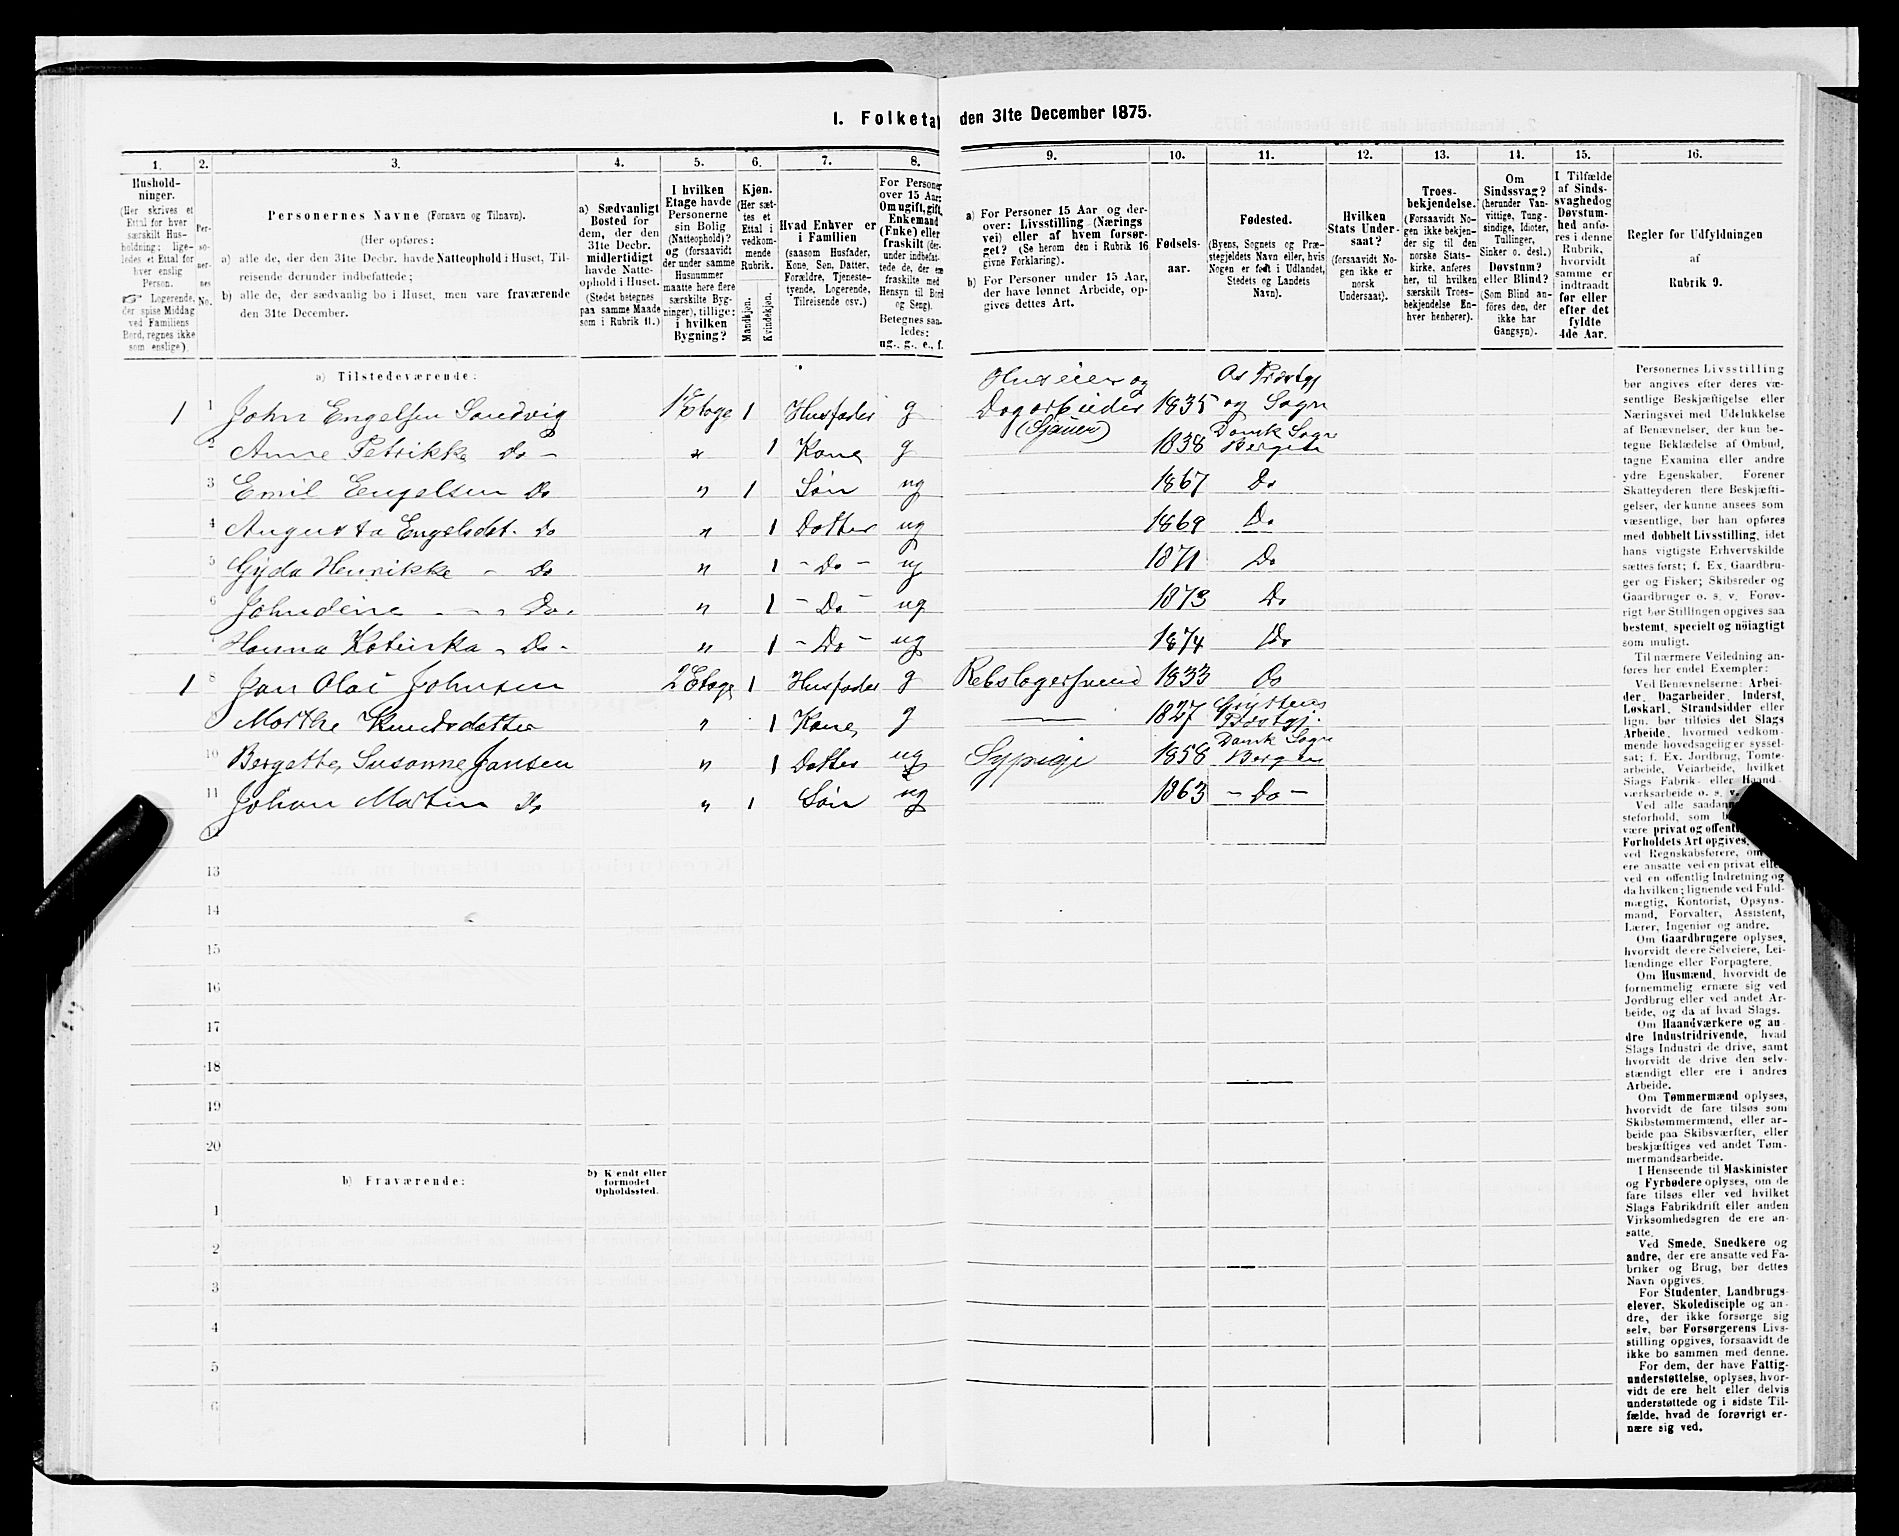 I. Folketa den 31te December 1875.
1. 2. 3. 4. 5. 6. 7. 8. 9. 10. 11. 12. 13. 14. 15. 16.
Hushold-
ninger.
(Her skrives et
Ettal for hver
særskilt Hus-
holdning; lige-
ledes et Ettal for
hver enslig
Person.
☞ Logerende,
der spise Middag
ved Familiens
Bord, regnes ikke
som enslige).
Per-
so-
ner-
nes
No.
Personernes Navne (Fornavn og Tilnavn).
(Her opføres:
a) alle de, der den 31te Decbr. havde Natteophold i Huset, Til-
reisende derunder indbefattede;
b) alle de, der sædvanlig bo i Huset, men vare fraværende
den 31te December.
a) Sædvanligt
Bosted for
dem, der den
31te Decbr.
midlertidigt
havde Natte-
ophold i Huset.
(Stedet betegnes
paa samme Maade
som i Rubrik 11.)
I hvilken
Etage havde
Personerne
sin Bolig
(Natteophold)?
og (forsaavidt
der under samme
Husnummer
maatte høre flere
særskilte Byg-
ninger), tillige:
i hvilken
Bygning?
Kjøn.
(Her sæt-
tes et
Ettal i
vedkom-
mende
Rubrik.
Mandkjøn.
Kvindekjøn.
Hvad Enhver er
i Familien
(saasom Husfader,
Kone, Søn, Datter,
Forældre, Tjeneste-
tyende, Logerende,
Tilreisende osv.)
For Personer
over 15 Aar:
Om ugift, gift,
Enkemand
(Enke) eller
fraskilt (der-
under indbefat-
tede de, der ere
fraskilte med
Hensyn til Bord
og Seng).
Betegnes saa-
ledes:
ug., g., e., f.
a) For Personer 15 Aar og der-
over: Livsstilling (Nærings
vei) eller af hvem forsør-
get? (Se herom den i Rubrik 16
givne Forklaring).
b) For Personer under 15 Aar,
der have lønnet Arbeide, op-
gives dettes Art.
Fødsels-
aar.
Fødested.
(Byens, Sognets og Præ-
stegjeldets Navn eller, hvis
Nogen er født i Udlandet,
Stedets og Landets
Navn).
Hvilken
Stats Under-
saat?
(forsaavidt No-
gen ikke er
norsk
Undersaat).
Troes-
bekjendelse.
(Forsaavidt No-
gen ikke bekjen-
der sig til den
norske Stats-
kirke, anføres
her, til hvilken
særskilt Troes-
bekjendelse En-
hver henhører).
Om
Sindssvag?
(herunder Van-
vittige, Tung-
sindige, Idioter,
Tullinger,
Sinker o. desl.).
Døvstum?
eller Blind?
(Som Blind an-
føres den, der
ikke har
Gangsyn).
I Tilfælde
af Sinds-
svaghed og
Døvstum-
hed anfø-
res i denne
Rubrik,
hvorvidt
samme er
indtraadt
før eller
efter det
fyldte
4de Aar.
Regler for Udfyldningen
af
Rubrik 9.
a) Tilstedeværende:
1 1 John Engelsen Sandvig 1 Etage 1 Husfader g Huseier og Dagarbeider (Sjauer) 1835 Os Præstgj og Sogn
2 Anne Petrikke Do - " 1 Kone g 1838 Domk Sogn Bergen
3 Emil Engelsen Do " 1 Søn ug 1867 Do
4 Augusta Engelsdat. Do " 1 Datter ug 1869 Do
5 Gyda Henrikke - Do " 1 - Do - ug 1871 Do
6 Johndine - - Do. " 1 - Do - ug 1873 Do
7 Hanna Katinka - Do - " 1 - Do - ug 1874 Do
1 8 Jan Olai Johnsen 2 Etage 1 Husfader g Rebslagersvend 1833 Os
9 Marthe Knudsdatter " 1 Kone g — 1827 Gryttens Præstgj.
10 Bergette Susanne Jansen " 1 Datter ug Sypige 1858 Domk Sogn Bergen
11 Johan Martin Do " 1 Søn ug 1863 - Do -
12
13
14
15
16
17
18
19
20
b) Fraværende:
b) Kjendt eller
formodet
Opholdssted.
1
2
3
4
5
6
Personernes Livsstilling
bør angives efter deres væ-
sentlige Beskjæftigelse eller
Næringsvei med Udelukkelse
af Benævnelser, der kun be-
tegne Beklædelse af Ombud,
tagne Examina eller andre
ydre Egenskaber. Forener
Skatteyderen flere Beskjæfti-
gelser, der kunne ansees som
væsentlige, bør han opføres
med dobbelt Livsstilling, idet
hans vigtigste Erhvervskilde
sættes først; f. Ex. Gaardbru-
ger og Fisker; Skibsreder og
Gaardbruger o. s. v. Forøv-
rigt bør Stillingen opgives saa
bestemt, specielt og nöiagtigt
som muligt.
Til nærmere Veiledning an-
føres her endel Exempler:
Ved Benævnelserne: Arbei-
der, Dagarbeider, Inderst,
Løskarl, Strandsidder eller
lign. bør tilføies det Slags
Arbeide, hvormed vedkom-
mende hovedsagelig er syssel-
sat; f. Ex. Jordbrug, Tomte-
arbeide, Veiarbeide, hvilket
Slags Fabrik- eller Haand-
værksarbeide o. s. v.
Ved alle saadan
steforhold, som b
være privat og offentl
Forholdets Art opgives,
ved Regnskabsførere, om
ere ansatte ved en privat elle
ved en offentlig Indretning og
da hvilken; lignende ved Fuld-
mægtig, Kontorist, Opsyns-
mand, Forvalter, Assistent,
Lærer, Ingeniør og andre.
Om Gaardbrugere oplyses,
hvorvidt de ere Selveiere, Lei-
lændinge eller Forpagtere.
Om Husmænd, hvorvidt de
fornemmelig ernære sig ved
Jordbrug eller ved andet Ar-
beide, og da af hvad Slags.
Om Haandværkere og an-
dre Industridrivende, hvad
Slags Industri de drive, samt
hvorvidt de drive den selv-
stændigt eller ere i andres
Arbeide.
Om Tømmermænd oplyses,
hvorvidt de fare tilsøs som
Skibstømmermænd, eller ar-
beide paa Skibsværfter, eller
beskjæftiges ved andet Tøm-
mermandsarbeide.
I Henseende til Maskinister
og Fyrbødere oplyses, om de
fare tilsøs eller ved hvilket
Slags Fabrikdrift eller anden
Virksomhedsgren de ere an-
satte.
Ved Smede, Snedkere og
andre, der ere ansatte ved Fa-
briker og Brug, bør dettes
Navn opgives.
For Studenter, Landbrugs-
elever, Skoledisciple og an-
dre, der ikke forsørge sig
selv, bør Forsørgerens Livs-
stilling opgives, forsaavidt de
ikke bo sammen med denne.
For dem, der have Fattig-
understøttelse, oplyses, hvor-
vidt de ere helt eller delvis
understøttede og i sidste Til-
fælde, hvad de forøvrigt er-
nære sig ved.